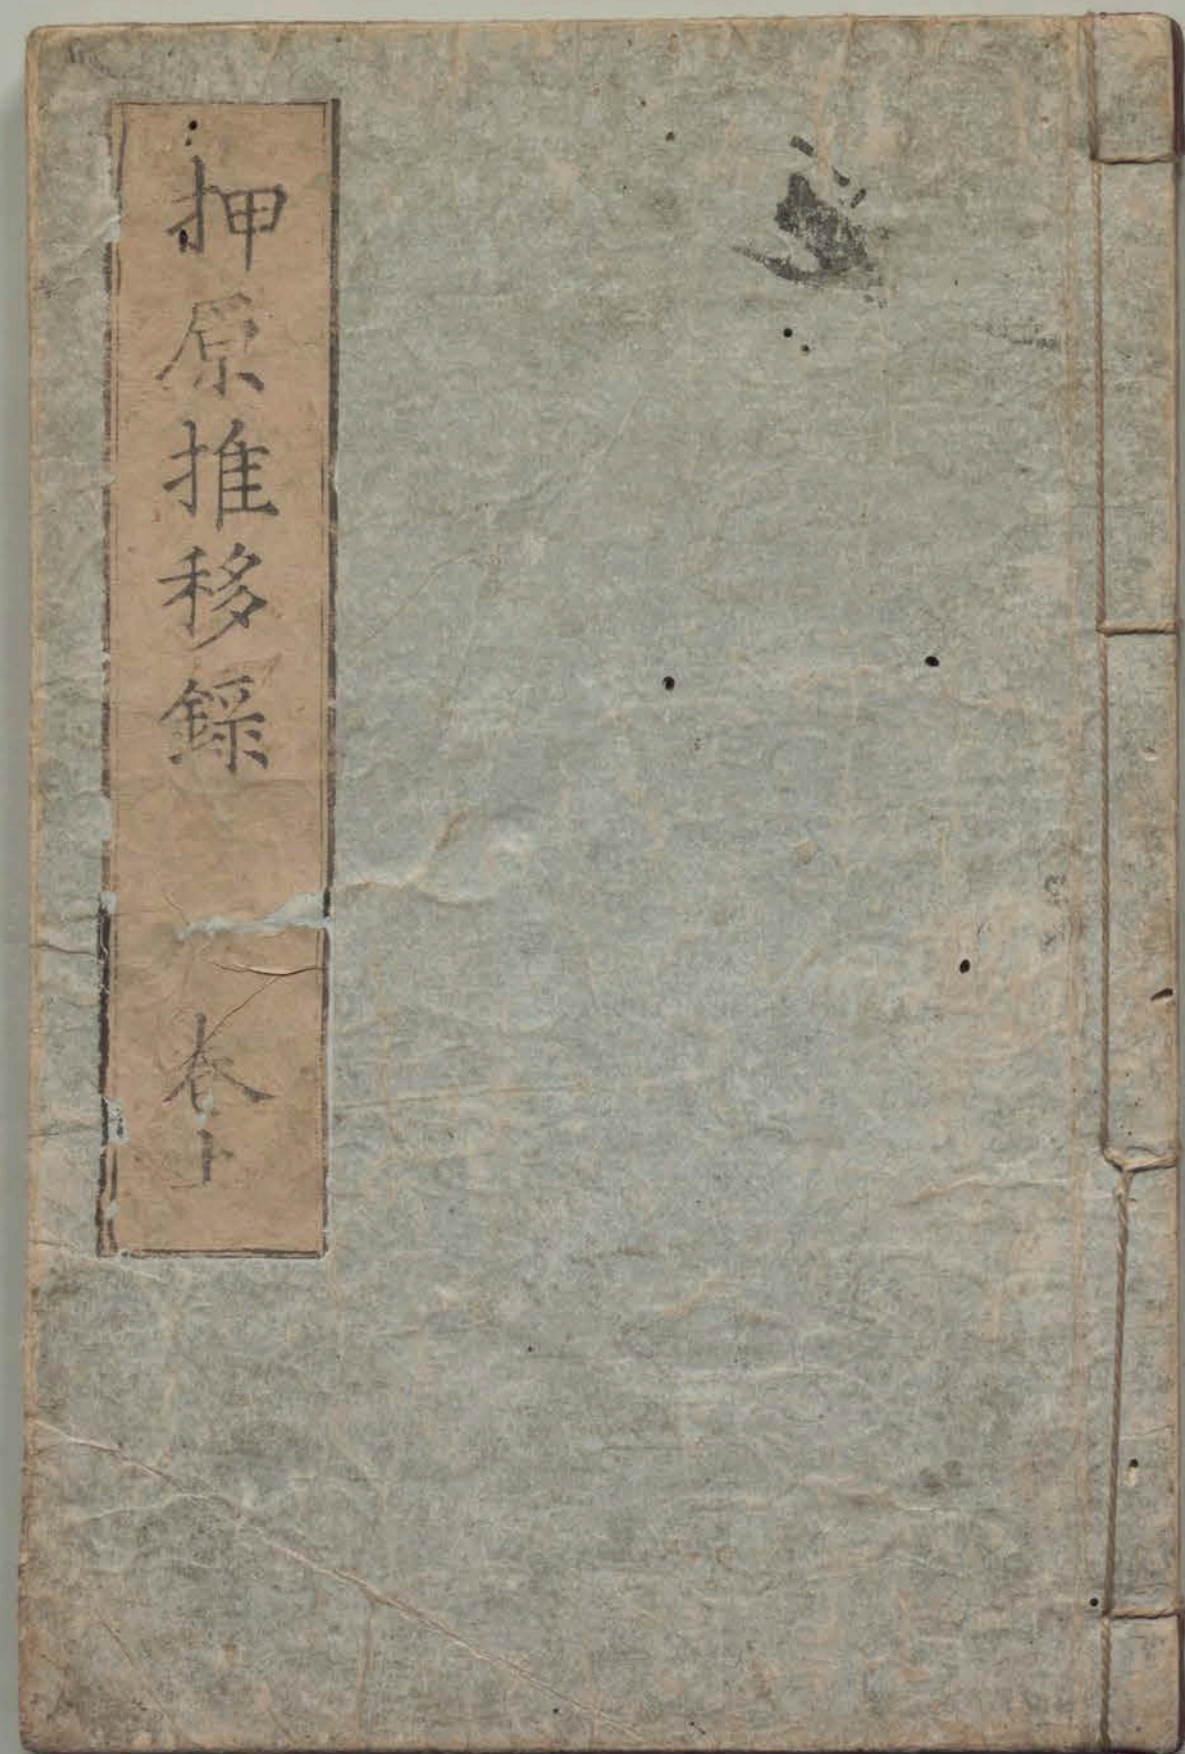 押原推移録　巻上